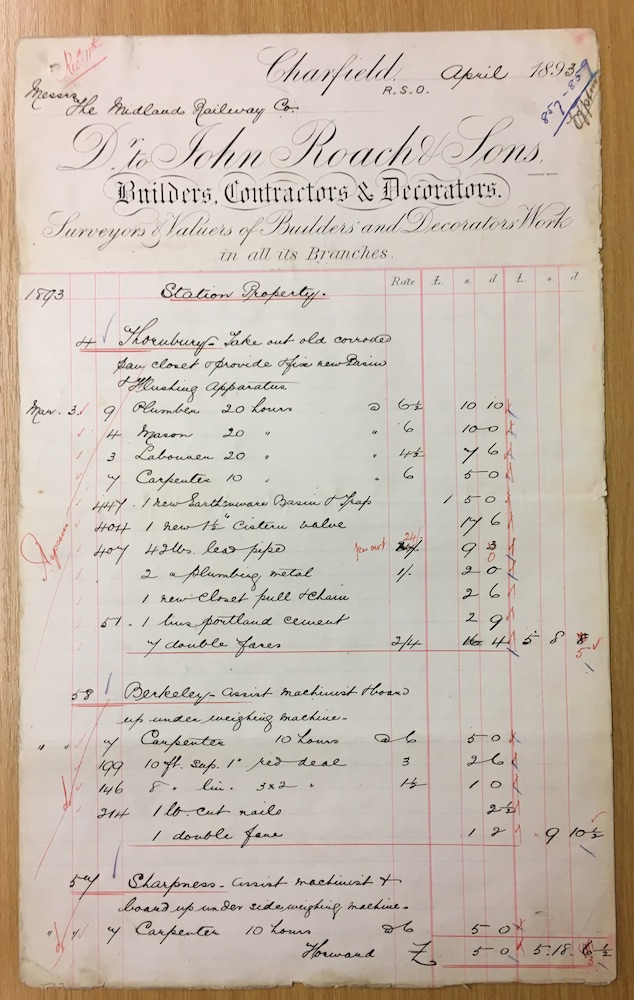 Rec'd 11th
Charfield, April 1893
R.S.O.
857-859
Messrs The Midlands Railway Co.
Dr. to John Roach & Sons.
Builders, Contractors & Decorators.
Surveyors & Valuers of Builders' and Decorators Work
in all its Branches.
Rate £. s. d £. s d
1893 Station Property.
4 Thornbury - Take out old corroded
pan closet & provide & fix new Basin
& Flushing Apparatus
Mar. 3. 9 Plumber 20 hours @ 6½ 10 10
4 Mason 20 " " 6 10 0
3 Labourer 20 " " 4½ 7 6
7 Carpenter 10 " " 6 5 0
447. 1 new Earthenware Basin & Trap 1 5 0
404 1 new 1½" Cistern valve 17 6
407 42 lbs. lead pipe per cwt 24/ 9 3 0
2 " plumbing metal 1/. 2 0
1 new closet pull & chain 2 6
51. 1 bus portland cement 2 9
7 double fares 2/4 16 4 5 8 8 5
58 Berkeley - assist machinist & board
up under weighing machine -
" " 7 Carpenter 10 hours @ 6 5 0
199 10 ft. sup. 1" red deal 3 2 6
146 8 " lin. 3x2 " 1½ 1 0
214 1 lb. cut nails 2½
1 double fare 1 2 " 9 10½
57 Sharpness - assist machinist &
board up under side weighing machine -
" 7 7 Carpenter 10 hours @ 6 5 0
Forward £ 5 0 5.18. 6½ 3